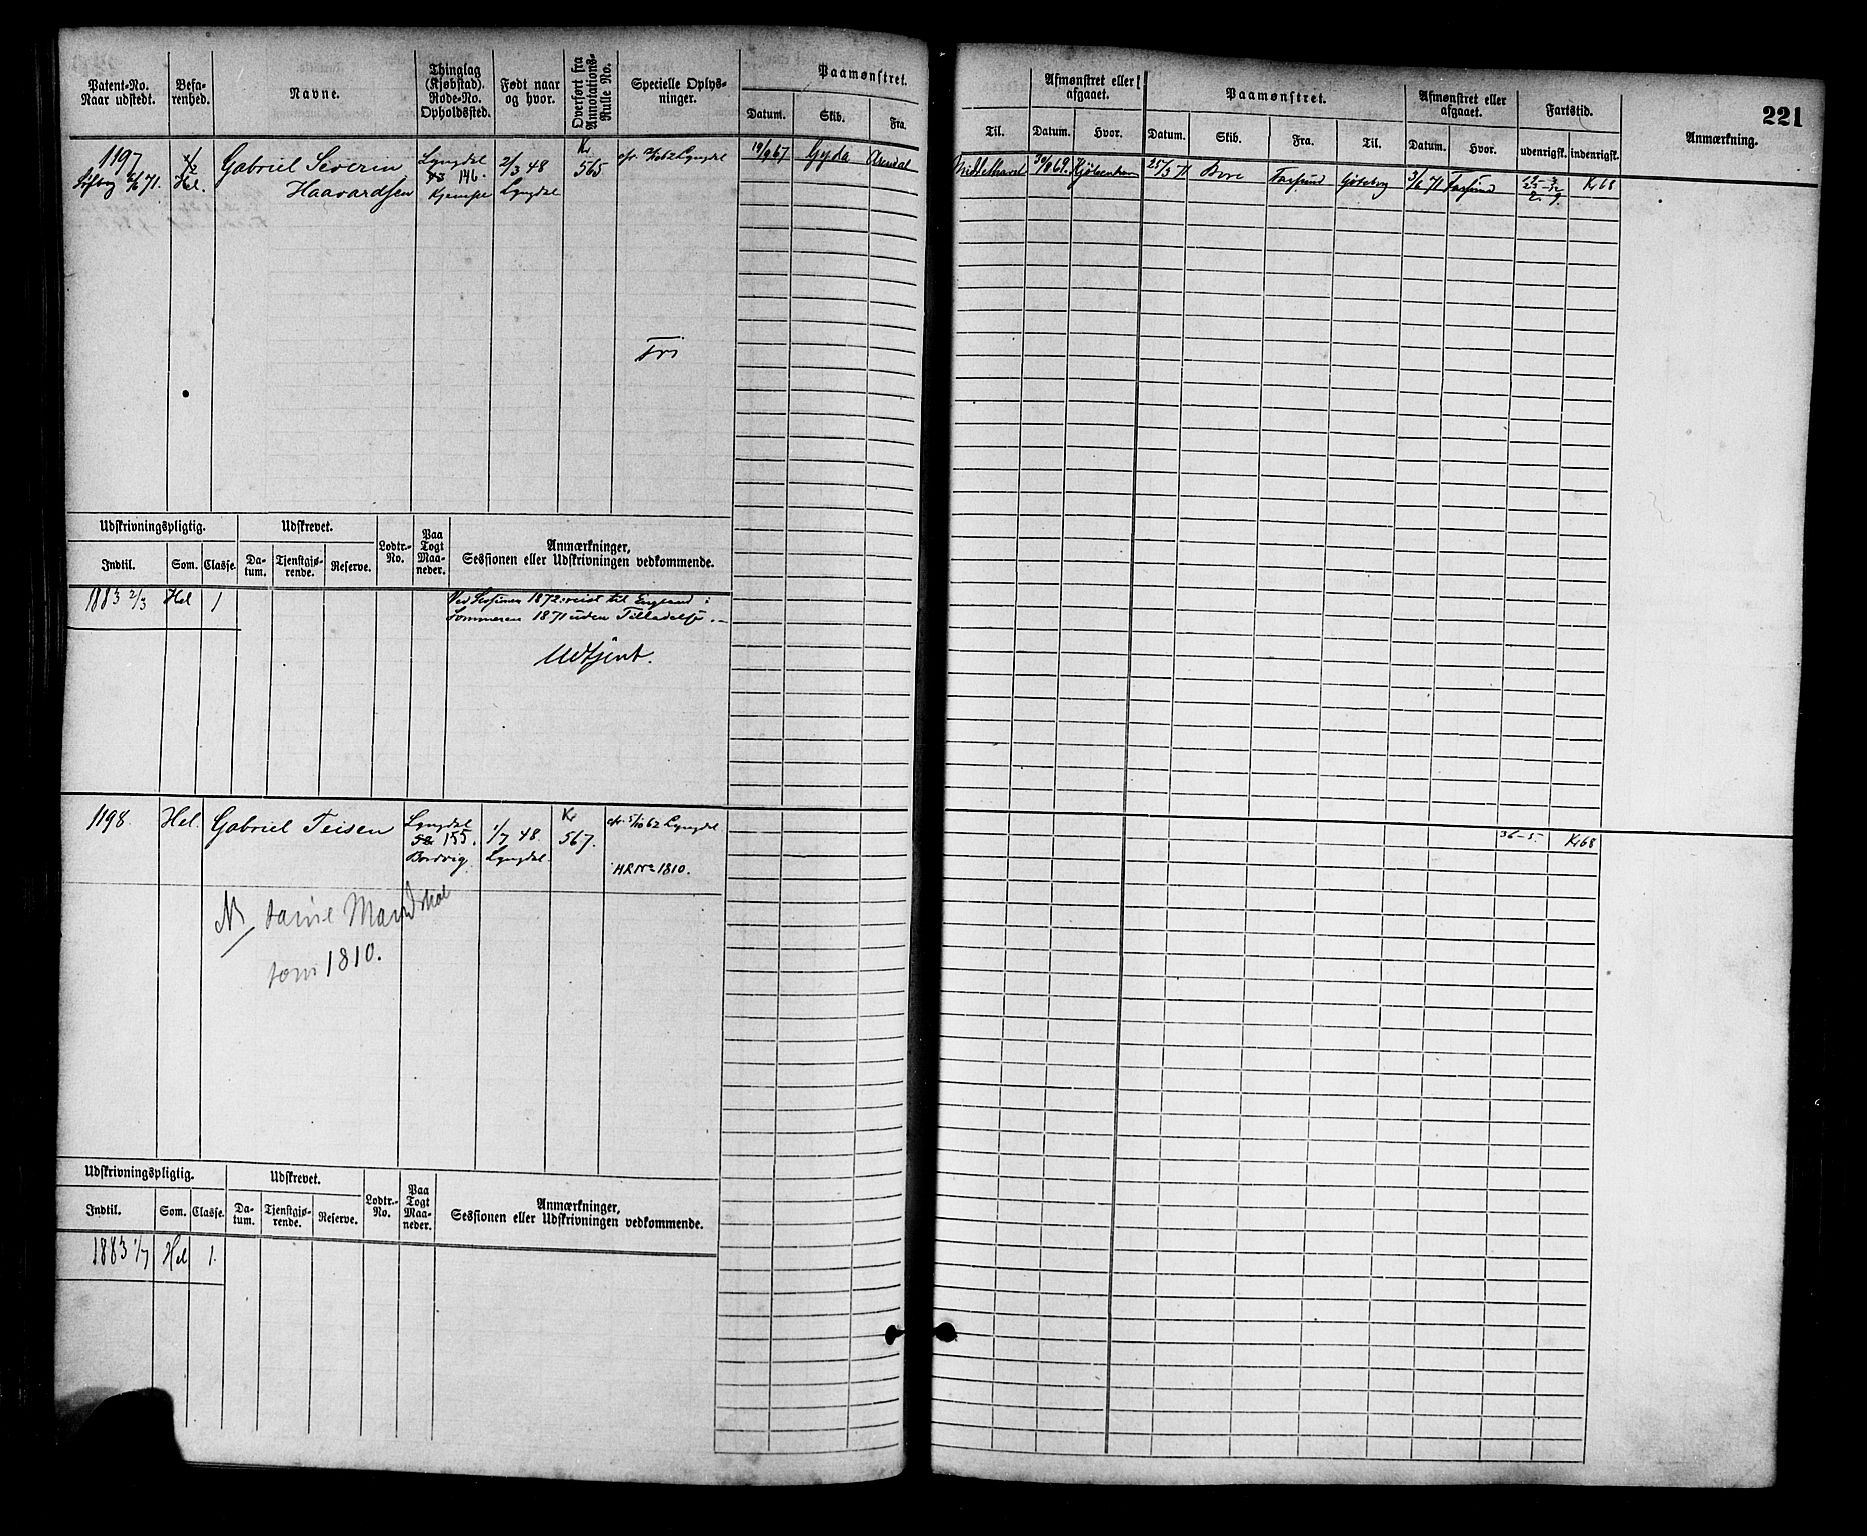 221
Patent-No. Naar udstedt.
Befarenhed.
Navne.
Thinglag (Kjøbstad). Rode-No. Opholdssted.
Født naar og hvor.
Overført fra Annotations-Rulle No.
Specielle Oplysninger.
Paamønstret.
Datum. Skib. Fra.
Til.
Afmønstret eller afgaaet.
Datum. Hvor.
Paamønstret.
Datum. Skib. Fra. Til.
Afmønstret eller afgaaet.
Datum. Hvor.
Fartstid.
udenrigsk. indenrigsk.
Anmærkning.
1197
Hel.
Gabriel Severin
Haavardsen
Lyngdal
146.
Kjempe
2/3 48
Lyngdal
Kr
565
Lyngdal
Fri
19/9 67 Gyda Arendal
Middelhavet 30/9 69 Kjøbenhavn 25/3 71 Farsund Göteborg 3/6 71 Farsund
Kr 68
Udskrivningspligtig. Udskrevet. Lodtr.-No. Paa Togt Maaneder. Anmærkninger, Sessionen eller Udskrivningen vedkommende.
Indtil. Som. Classe. Datum. Tjenstgjørende. Reserve.
1883 2/3 Hel 1
Ved Sessionen 1872: reist til England i
Sommeren 1871 uden Tilladelse.
Udtjent.
1198. Hel. Gabriel Teisen
Lyngdal
155.
1/7 48.
Lyngdal.
Kr
567.
cfr. 5/10 62 Lyngdal
HR No 1810.
36-5. Kr 68
N samme Mand
som 1810.
Udskrivningspligtig. Udskrevet. Lodtr.-No. Paa Togt Maaneder. Anmærkninger, Sessionen eller Udskrivningen vedkommende.
Indtil. Som. Classe. Datum. Tjenstgjørende. Reserve.
1883 1/7 Hel 1.